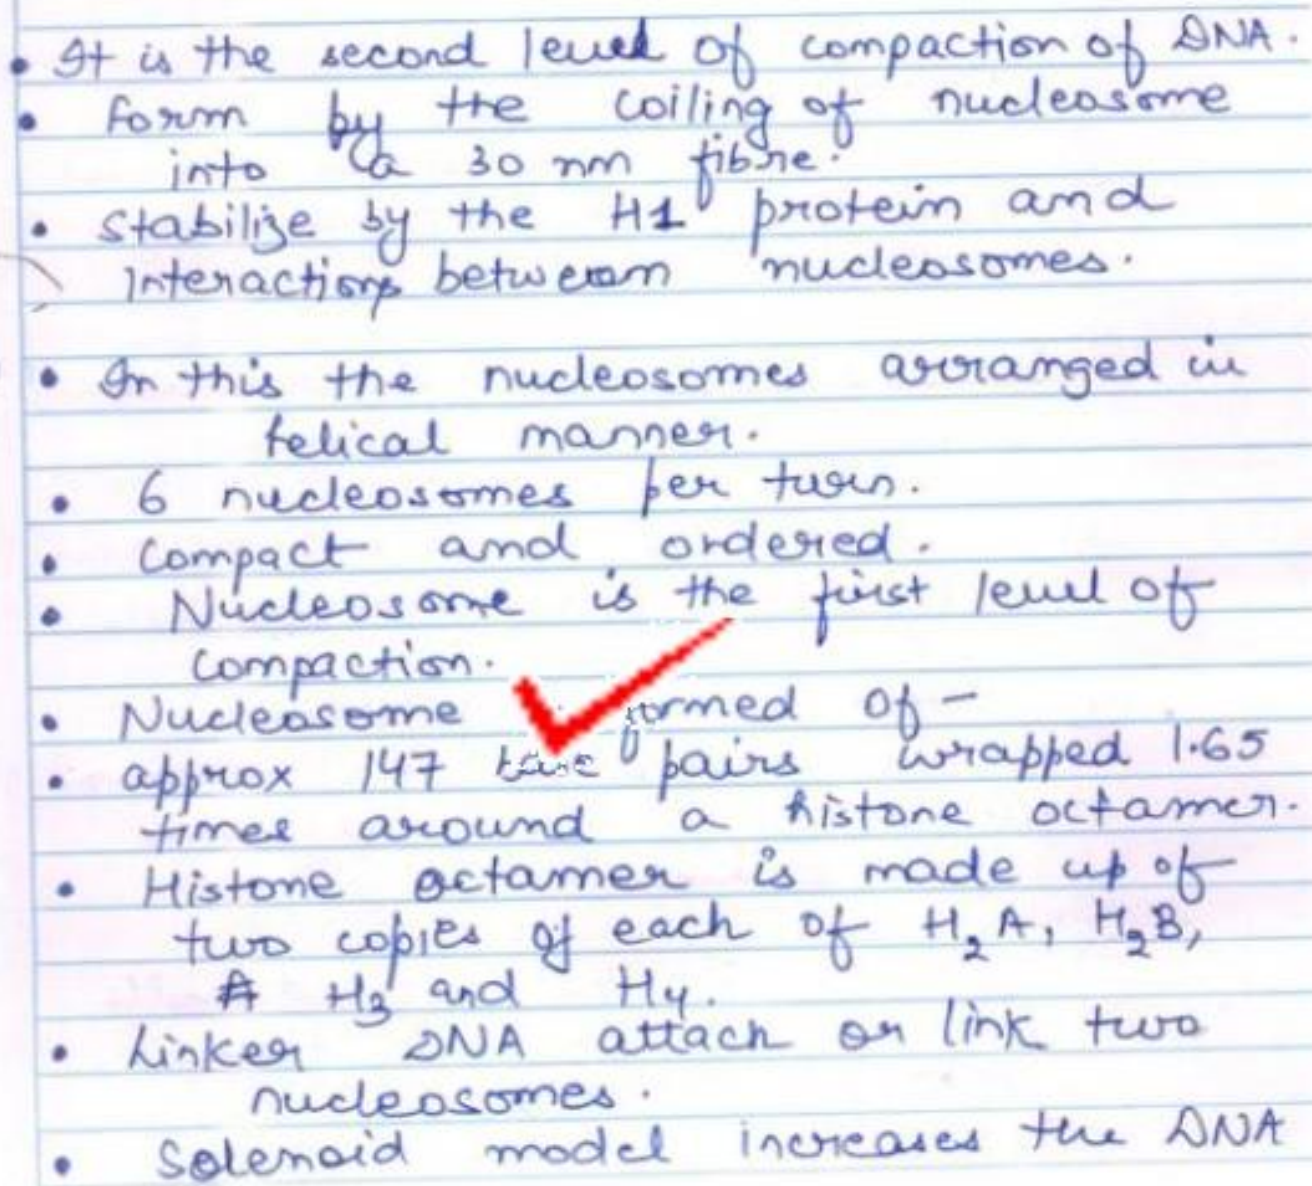 • It is the second level of compaction of DNA.
• form by the coiling of nucleosome
into a 30 nm fibre.
• Stabilize by the H1 protein and
interactions between nucleosomes.
• In this the nucleosomes arranged in
helical manner.
• 6 nucleosomes per turn.
• Compact and ordered.
• Nucleosome is the first level of
compaction.
• Nucleosome formed of -
• approx 147 base pairs wrapped 1.65
times around a histone octamer.
• Histone octamer is made up of
two copies of each of H₂A, H₂B,
H₃ and H₄.
• Linker DNA attach or link two
nucleosomes.
• Solenoid model increases the DNA